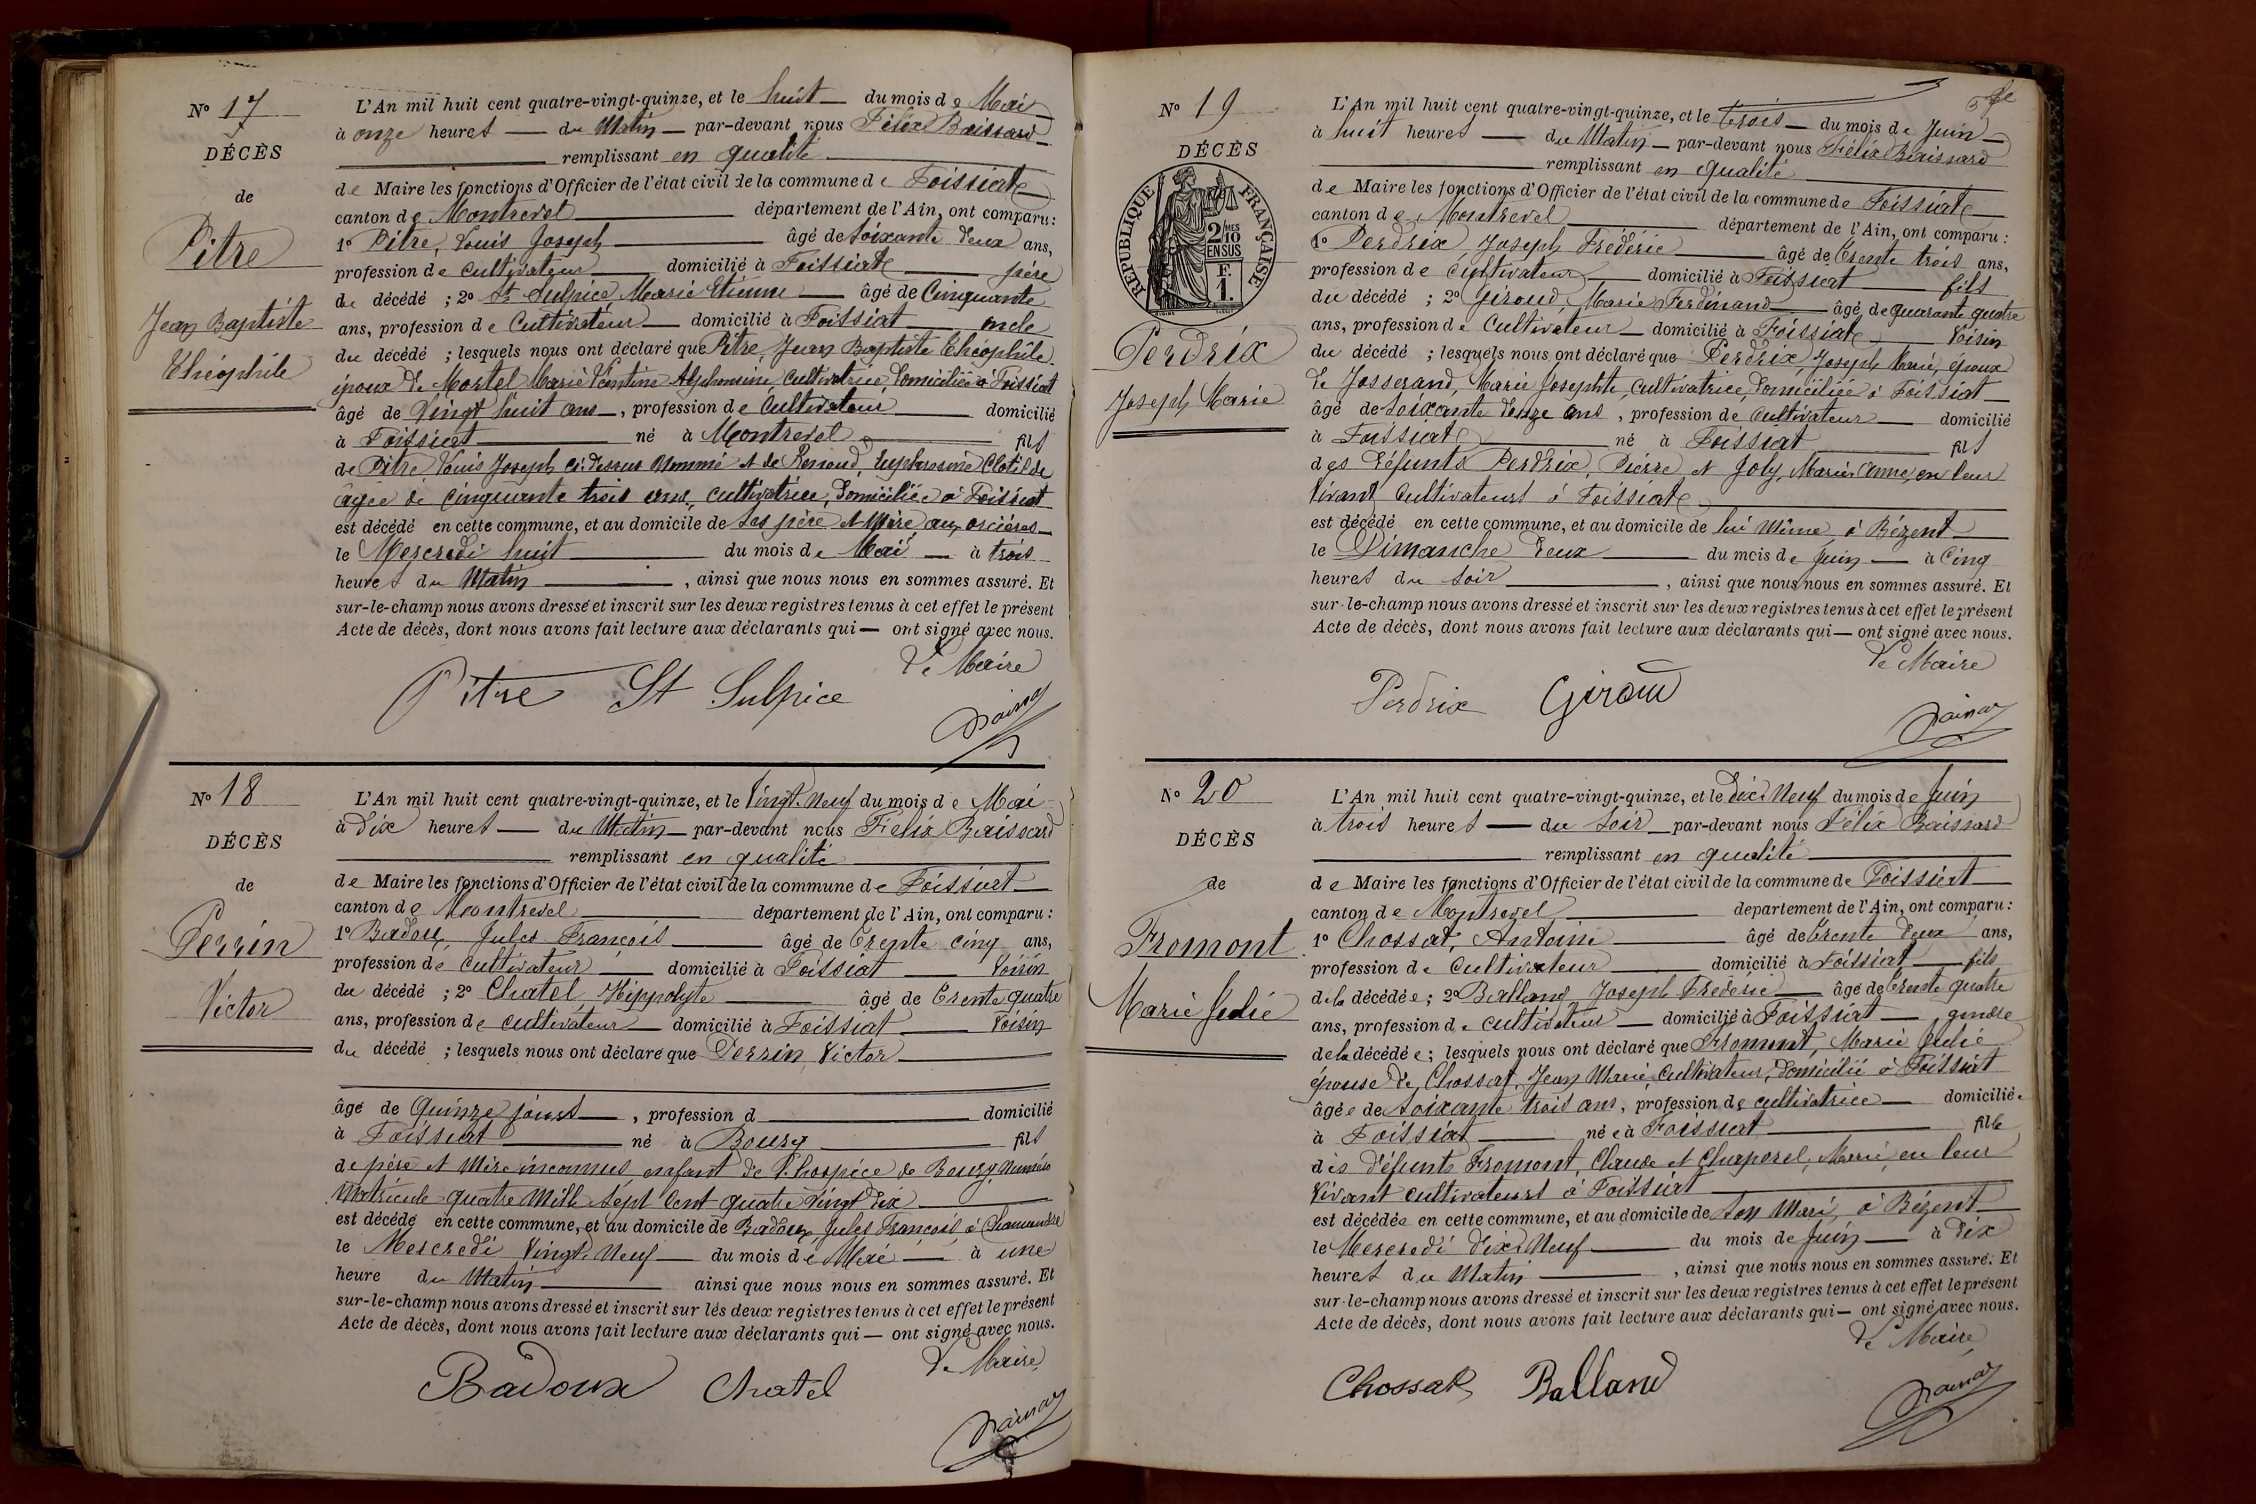 N° 17
DÉCÈS
de
Pitre
Jean Baptiste
Théophile
L'An mil huit cent quatre-vingt-quinze, et le huit du mois de Mai
à onze heures du Matin par-devant nous Félix Baissard
remplissant en qualité
de Maire les fonctions d'Officier de l'état civil de la commune de Foissiat
canton de Montrevel département de l'Ain, ont comparu:
1° Pitre, Louis Joseph âgé de soixante deux ans,
profession de cultivateur domicilié à Foissiat père
du décédé ; 2° St Sulpice Marie Etienne âgé de Cinquante
ans, profession de Cultivateur domicilié à Foissiat oncle
du décédé ; lesquels nous ont déclaré que Pitre, Jean Baptiste Théophile
époux de Mortel Marie Alphonsine, cultivatrice domiciliée à Foissiat
âgé de Vingt huit ans, profession de Cultivateur domicilié
à Foissiat né à Montrevel fils
de Pitre Louis Joseph ci-dessus Nommé et de Renoud, Euphrosine Clotilde
âgée de cinquante trois ans, cultivatrice, domiciliée à Foissiat
est décédé en cette commune, et au domicile de ses père et Mère aux
le Mercredi huit du mois de Mai à trois
heures du Matin, ainsi que nous nous en sommes assuré. Et
sur-le-champ nous avons dressé et inscrit sur les deux registres tenus à cet effet le présent
Acte de décès, dont nous avons fait lecture aux déclarants qui — ont signé avec nous.
Le Maire
Pitre St Sulpice
N° 18
DÉCÈS
de
Perrin
Victor
L'An mil huit cent quatre-vingt-quinze, et le Vingt-Neuf du mois de Mai
à dix heures du Matin par-devant nous Félix Baissard
remplissant en qualité
de Maire les fonctions d'Officier de l'état civil de la commune de Foissiat
canton de Montrevel département de l'Ain, ont comparu:
1° Badoux, Jules François âgé de Trente cinq ans,
profession de Cultivateur domicilié à Foissiat Voisin
du décédé ; 2° Chatel, Hippolyte âgé de Trente quatre
ans, profession de cultivateur domicilié à Foissiat Voisin
du décédé ; lesquels nous ont déclaré que Perrin Victor
âgé de Quinze jours, profession d domicilié
à Foissiat né à Bourg fils
de père et Mère inconnus, enfant de l'hospice de Bourg, Numéro
Matricule quatre Mille Sept Cent quatre Vingt Dix
est décédé en cette commune, et au domicile de Badoux Jules François, à
le Mercredi Vingt-Neuf du mois de Mai à une
heure du Matin ainsi que nous nous en sommes assuré. Et
sur-le-champ nous avons dressé et inscrit sur les deux registres tenus à cet effet le présent
Acte de décès, dont nous avons fait lecture aux déclarants qui — ont signé avec nous.
Le Maire,
Badoux Chatel
N° 19
DÉCÈS
RÉPUBLIQUE FRANÇAISE
2/10 MES
EN SUS
F.
1.
Perdrix
Joseph Marie
L'An mil huit cent quatre-vingt-quinze, et le trois du mois de Juin
à huit heures du Matin par-devant nous Félix Baissard
remplissant en qualité
de Maire les fonctions d'Officier de l'état civil de la commune de Foissiat
canton de Montrevel département de l'Ain, ont comparu :
1° Perdrix, Joseph Frédéric âgé de Trente trois ans,
profession de Cultivateur domicilié à Foissiat fils
du décédé ; 2° Giroud, Marie Ferdinand âgé de quarante quatre
ans, profession de Cultivateur domicilié à Foissiat Voisin
du décédé ; lesquels nous ont déclaré que Perdrix, Joseph Marie, époux
de Josserand, Marie Josephte, cultivatrice, domiciliée à Foissiat
âgé de soixante douze ans, profession de cultivateur domicilié
à Foissiat né à Foissiat fils
des défunts Perdrix, Pierre et Joly, Marie Anne, en leur
Vivant Cultivateurs à Foissiat
est décédé en cette commune, et au domicile de lui même à Bézent
le Dimanche deux du mois de Juin à Cinq
heures du soir, ainsi que nous nous en sommes assuré. Et
sur-le-champ nous avons dressé et inscrit sur les deux registres tenus à cet effet le présent
Acte de décès, dont nous avons fait lecture aux déclarants qui — ont signé avec nous.
Le Maire
Perdrix Giroud
N° 20
DÉCÈS
de
Fromont
Marie Julie
L'An mil huit cent quatre-vingt-quinze, et le dix-Neuf du mois de Juin
à trois heures du soir par-devant nous Félix Baissard
remplissant en qualité
de Maire les fonctions d'Officier de l'état civil de la commune de Foissiat
canton de Montrevel département de l'Ain, ont comparu :
1° Chossat, Antoine âgé de trente deux ans,
profession de Cultivateur domicilié à Foissiat fils
de la décédée ; 2° Balland Joseph Frédéric âgé de trente quatre
ans, profession de cultivateur domicilié à Foissiat gendre
de la décédée ; lesquels nous ont déclaré que Fromont, Marie Julie
épouse de Chossat, Jean Marie, cultivateur, domicilié à Foissiat
âgée de soixante trois ans, profession de cultivatrice domiciliée
à Foissiat née à Foissiat fille
des défunts Fromont, Claude et Charporel, Marie, en leur
Vivant cultivateurs à Foissiat
est décédée en cette commune, et au domicile de son Mari, à Bézent
le Mercredi dix-Neuf du mois de Juin à dix
heures du Matin, ainsi que nous nous en sommes assuré. Et
sur-le-champ nous avons dressé et inscrit sur les deux registres tenus à cet effet le présent
Acte de décès, dont nous avons fait lecture aux déclarants qui — ont signé avec nous.
Le Maire,
Chossat Balland